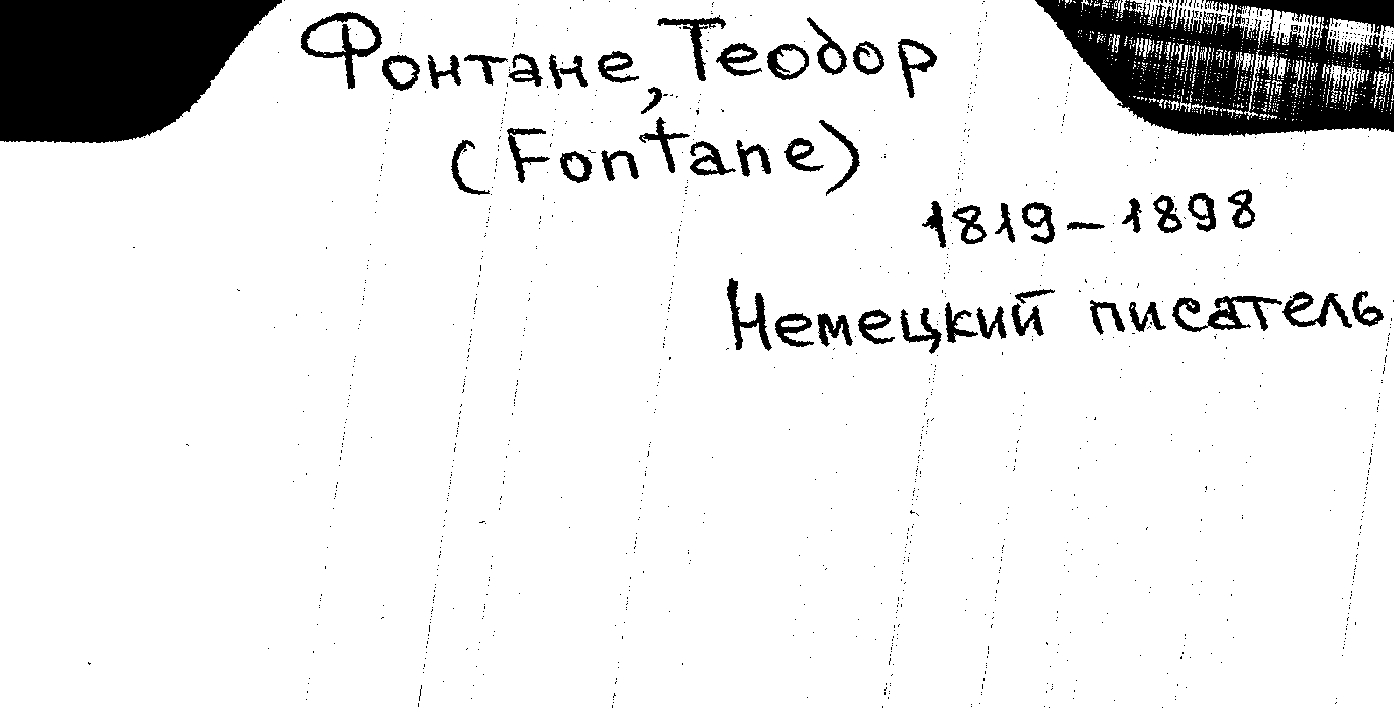 Фонтане, Теодор
(Fontane)
1819-1898
Немецкий писатель